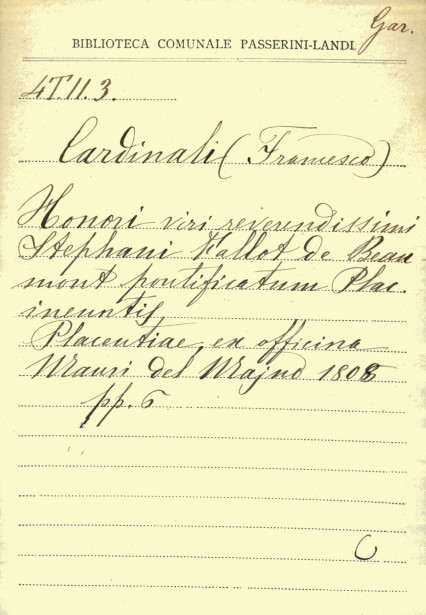 Gar.
BIBLIOTECA COMUNALE PASSERINI-LANDI
4T.11.3.
Cardinali (Francesco)
Honori viri reverendissimi
Stephani Fallot de Beau
mont pontificatum Plac.
ineuntis
Placentiae, ex officina
Mauri del Majno 1808
pp. 6
C